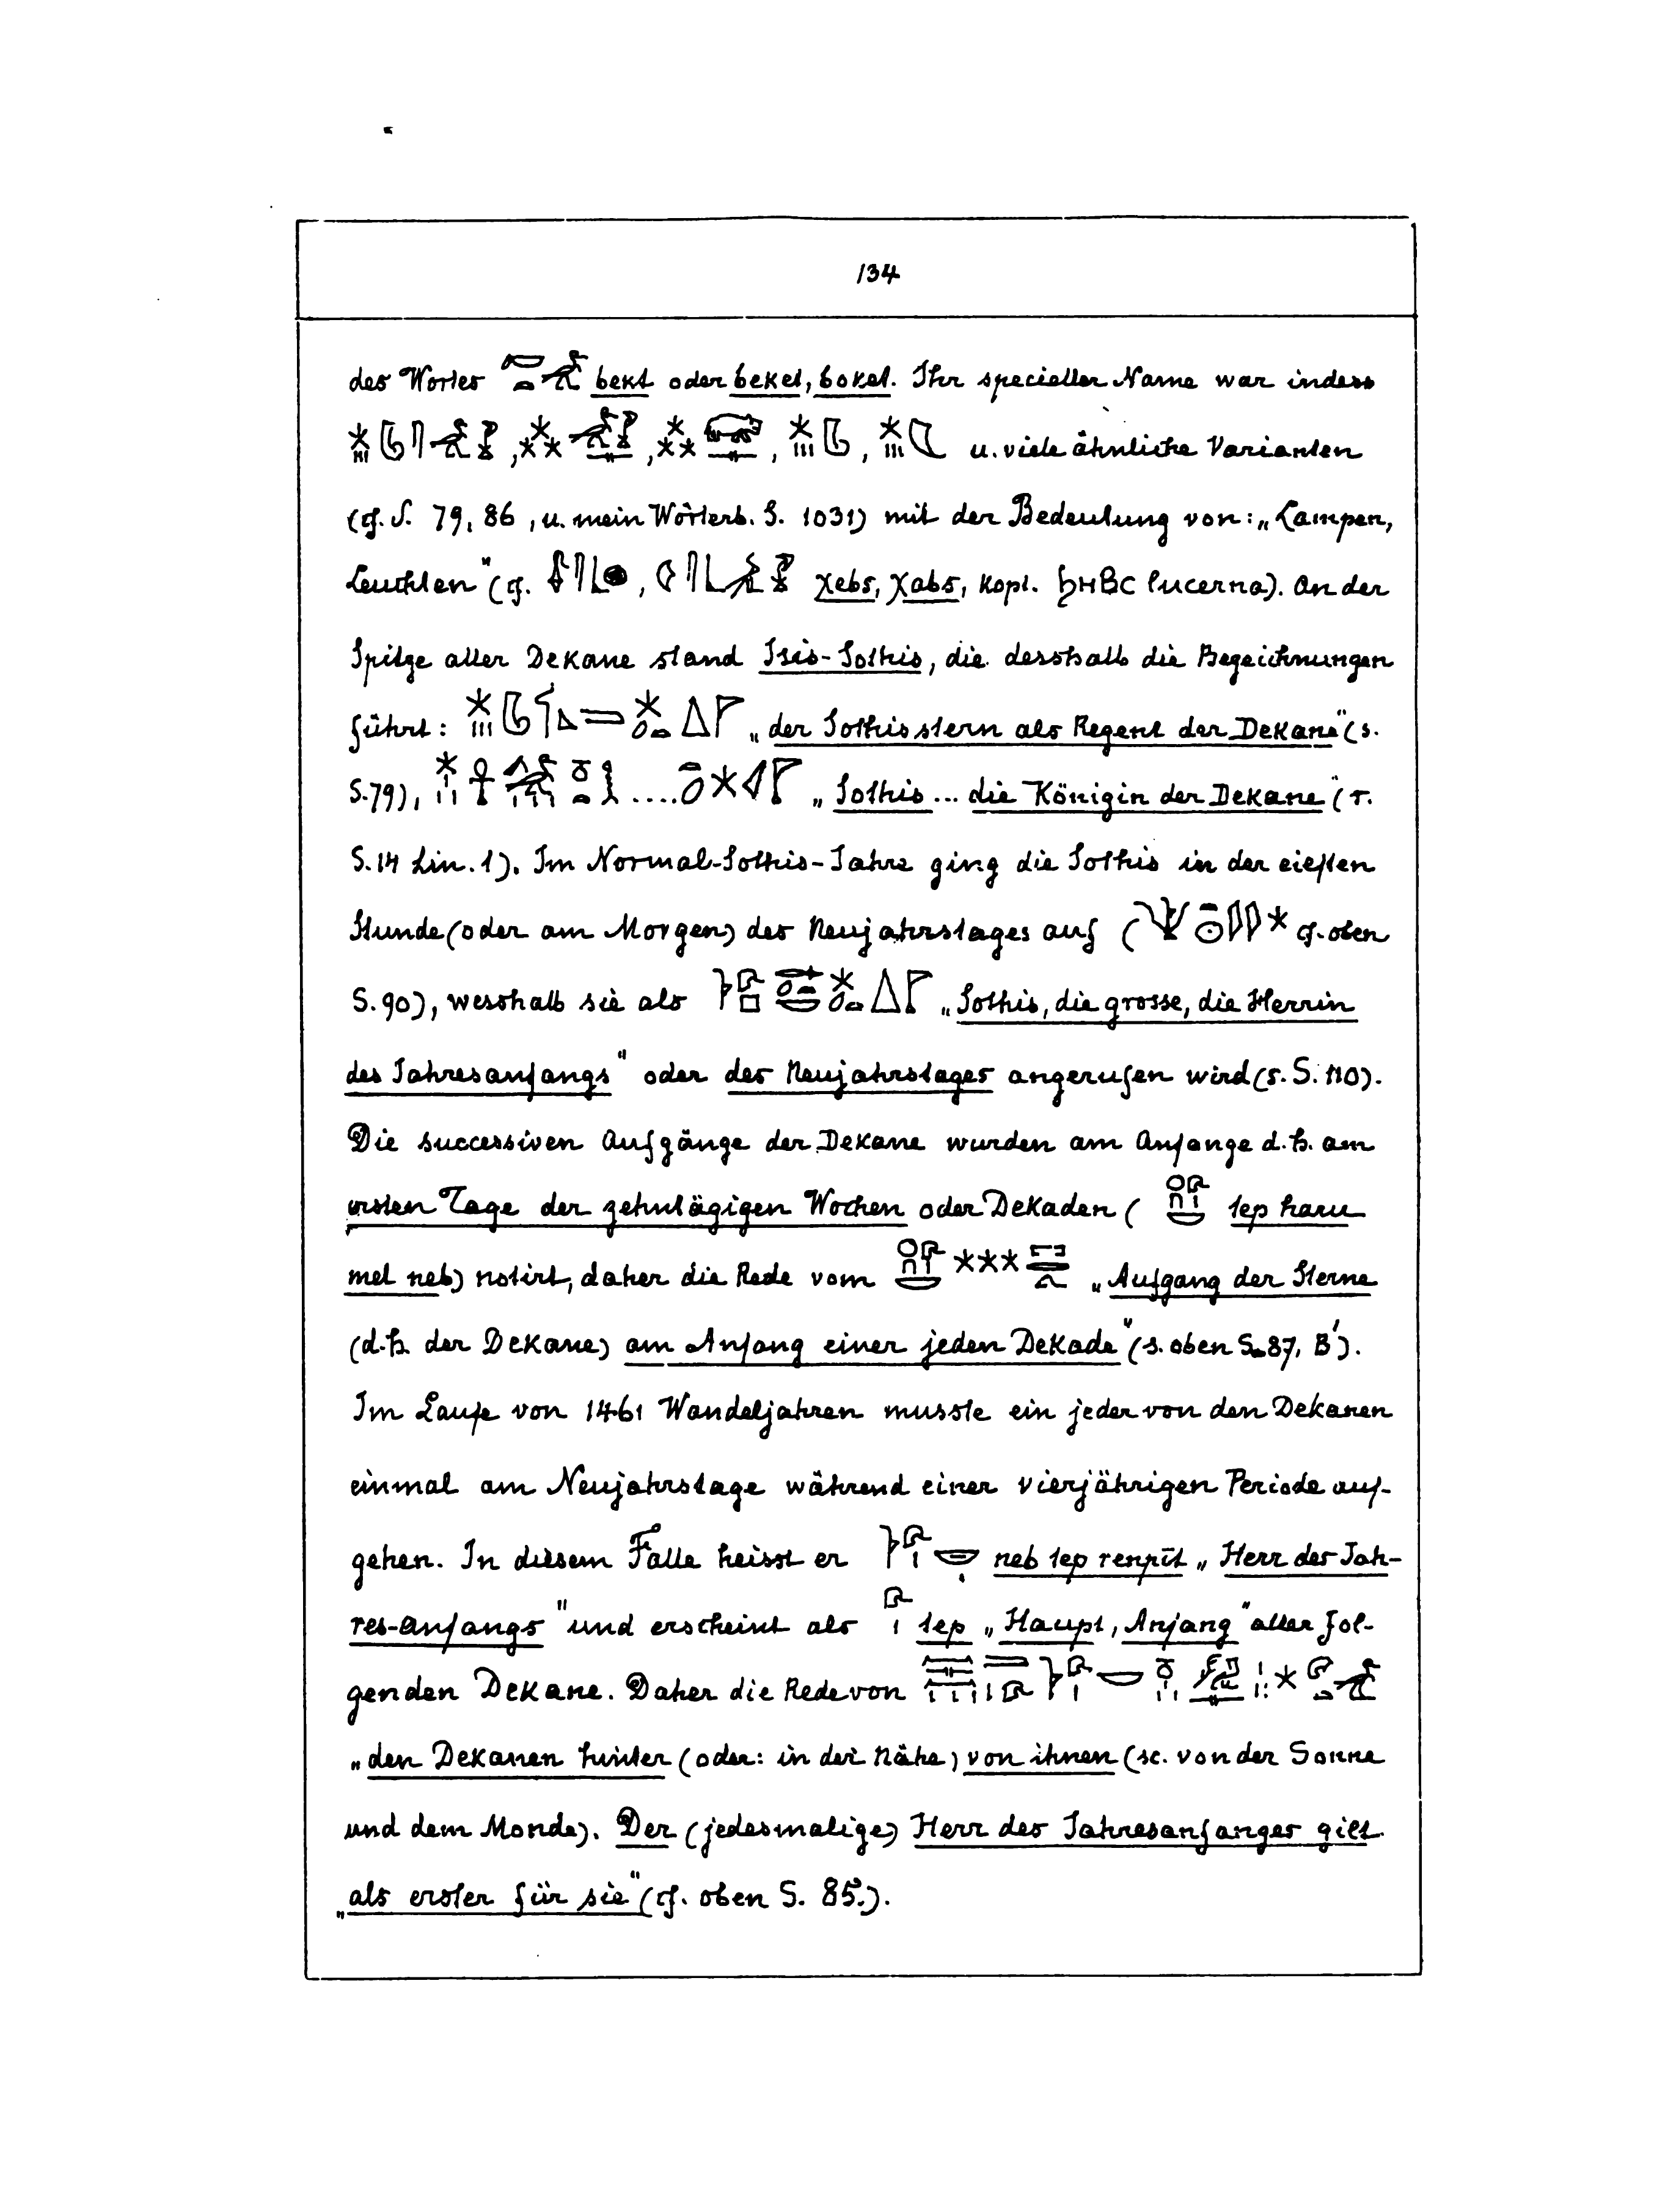 134
des Wortes bekt oder beket, boket. Ihr specieller Name war indess
, , , , u. viele ähnliche Varianten
(cf. S. 79, 86, u. mein Wörterb. S. 1031) mit der Bedeutung von: „Lampen,
Leuchten" (cf. , χebs, χabs, kopt. ϧΗΒС lucerna). An der
Spitze aller Dekane stand Isis-Sothis, die desshalb die Bezeichnungen
führt: „der Sothisstern als Regent der Dekane" (s.
S. 79), .... „Sothis... die Königin der Dekane" (s.
S. 14 Lin. 1). Im Normal-Sothis-Jahre ging die Sothis in der
Stunde (oder am Morgen) des Neujahrstages auf ( cf. oben
S. 90), wesshalb sie als „Sothis, die grosse, die Herrin
des Jahresanfangs" oder des Neujahrstages angerufen wird (s. S. 110).
Die successiven Aufgänge der Dekane wurden am Anfange d. h. am
ersten Tage der zehntägigen Wochen oder Dekaden ( tep haru
met neb) notirt, daher die Rede vom „Aufgang der Sterne
(d. h. der Dekane) am Anfang einer jeden Dekade" (s. oben S. 87, B').
Im Laufe von 1461 Wandeljahren musste ein jeder von den Dekanen
einmal am Neujahrstage während einer vierjährigen Periode auf-
gehen. In diesem Falle heisst er neb tep renpit „Herr des Jah-
res-anfangs" und erscheint als tep „Haupt, Anfang" aller fol-
genden Dekane. Daher die Rede von
„den Dekanen hinter (oder: in der Nähe) von ihnen (sc. von der Sonne
und dem Monde). Der (jedesmalige) Herr des Jahresanfanges gilt
„als erster für sie" (cf. oben S. 85.).